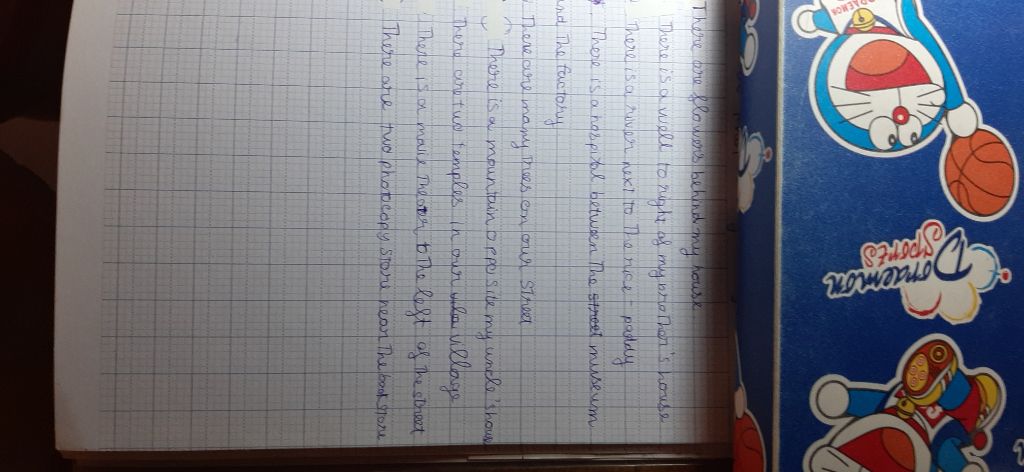 There are flowers behind my house
There is a well to right of my brother's house
There is a river next to The rice - paddy
There is a hospital between The street museum
and The factory
There are many Trees on our Street
There is a mountain opposite my uncle's house
There are two temples in our village
There is a movie Theater to The left of The street
There are two photocopy store near The book store
DORAEMON
Doraemon
SPORTS